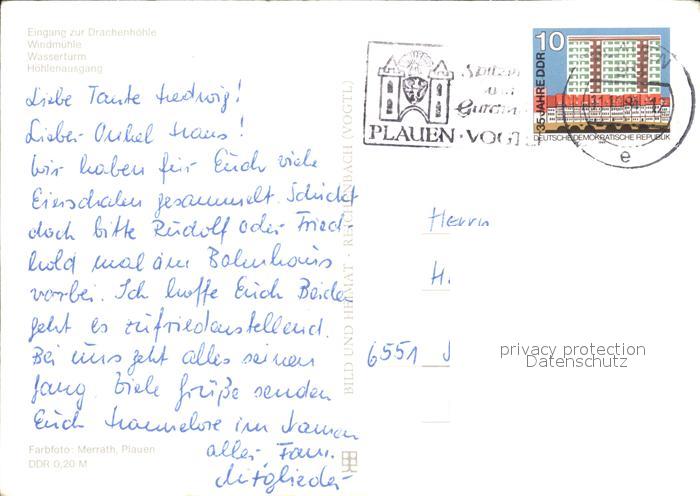 Eingang zur Drachenhöhle
Windmühle
Wasserturm
Höhlenausgang
Liebe Tante Hedwig!
Lieber Onkel Hans!
Wir haben für Euch viele
Eierschalen gesammelt. Schickt
doch bitte Rudolf oder Fried-
hold mal am Bahnhaus
vorbei. Ich hoffe Euch Beiden
geht es zufriedenstellend.
Bei uns geht alles seinen
Gang. Viele Grüße senden
Euch Hannelore im Namen
aller Fam.
Mitglieder
Farbfoto: Merrath, Plauen
DDR 0,20 M
BILD UND HEIMAT · REICHENBACH (VOGTL)
PLAUEN · VOGTL
e
10
35 JAHRE DDR
DEUTSCHE DEMOKRATISCHE REPUBLIK
Herrn
H.
6551 J
privacy protection
Datenschutz